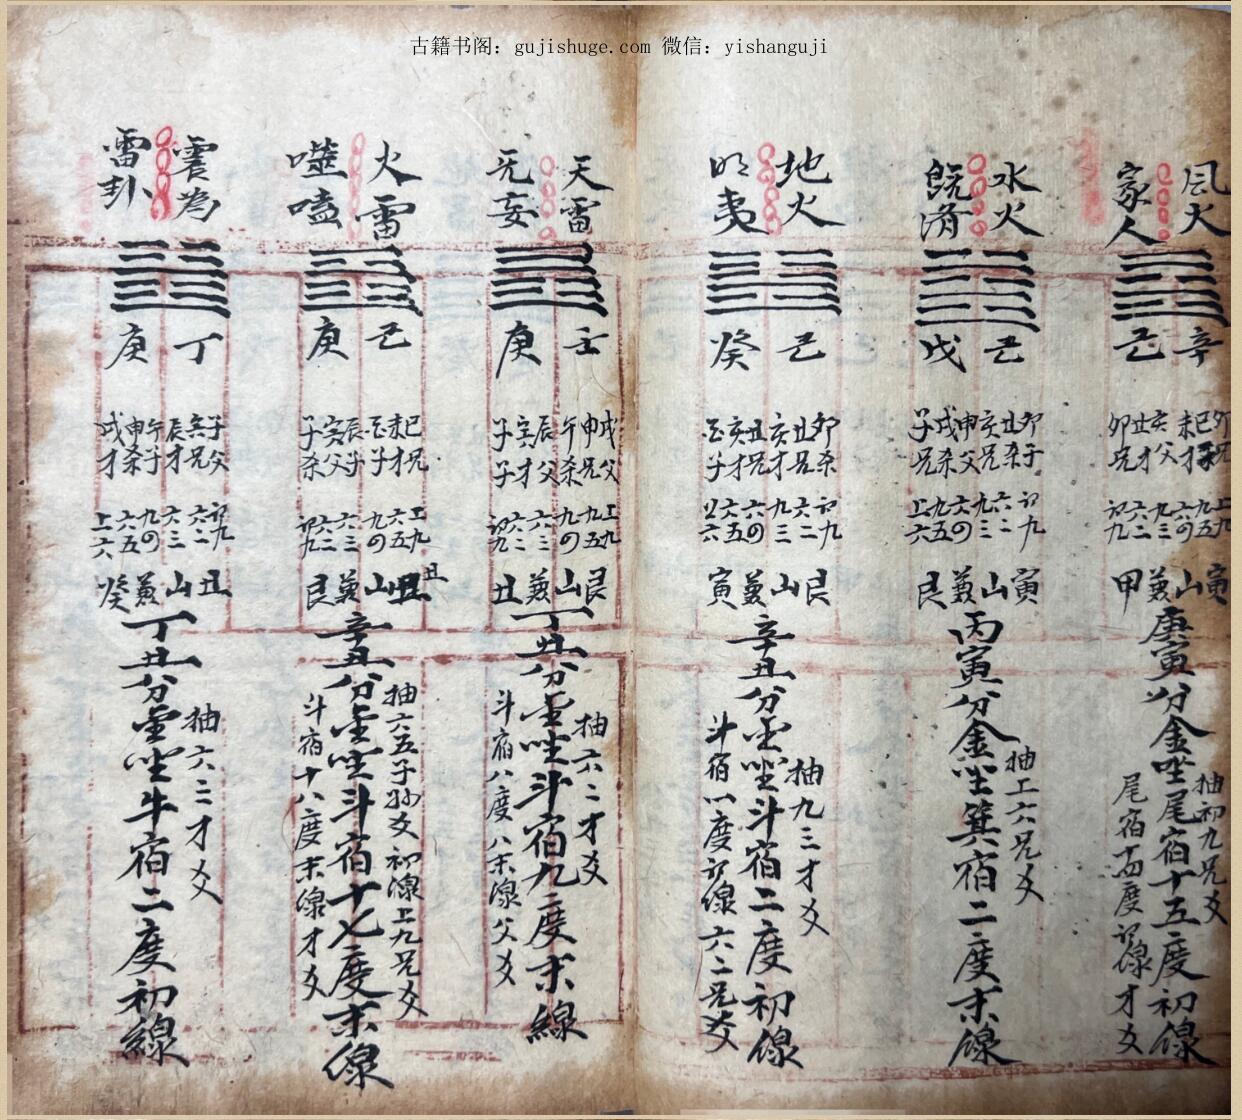 古籍书阁：gujishuge.com 微信：yishanguji
風火
家人
辛
己
卯兄
巳子
未才
亥父
丑才
卯兄
上九
九五
六四
九三
六二
初九
寅
山
兼
甲
庚寅分金坐尾宿十五度初線
抽初九兄爻
尾宿十四度初線才爻
水火
既濟
己
戊
卯子
丑杀
亥兄
申父
戌杀
子兄
初九
六二
九三
六四
九五
上六
寅
山
兼
艮
丙寅分金坐箕宿二度末線
抽上六兄爻
地火
明夷
己
癸
卯杀
丑兄
亥才
丑兄
亥才
酉子
初九
六二
九三
六四
六五
上六
艮
山
兼
寅
辛丑分金坐斗宿二度初線
抽九三才爻
斗宿一度初線六二兄爻
天雷
无妄
壬
庚
戌父
申兄
午杀
辰父
寅子
子子
上九
九五
九四
六三
六二
初九
艮
山
兼
丑
丁丑分金坐斗宿九度末線
抽六二才爻
斗宿八度八末線父爻
火雷
噬嗑
己
庚
巳兄
未才
酉子
辰子
寅父
子杀
上九
六五
九四
六三
六二
初九
丑
山
兼
艮
辛丑分金坐斗宿十七度末線
抽六五子孙爻初線上九兄爻
斗宿十八度末線才爻
震為
雷卦
丁
庚
子父
寅兄
辰才
午子
申杀
戌才
初九
六二
六三
九四
六五
上六
丑
山
兼
癸
丁丑分金坐牛宿二度初線
抽六三才爻